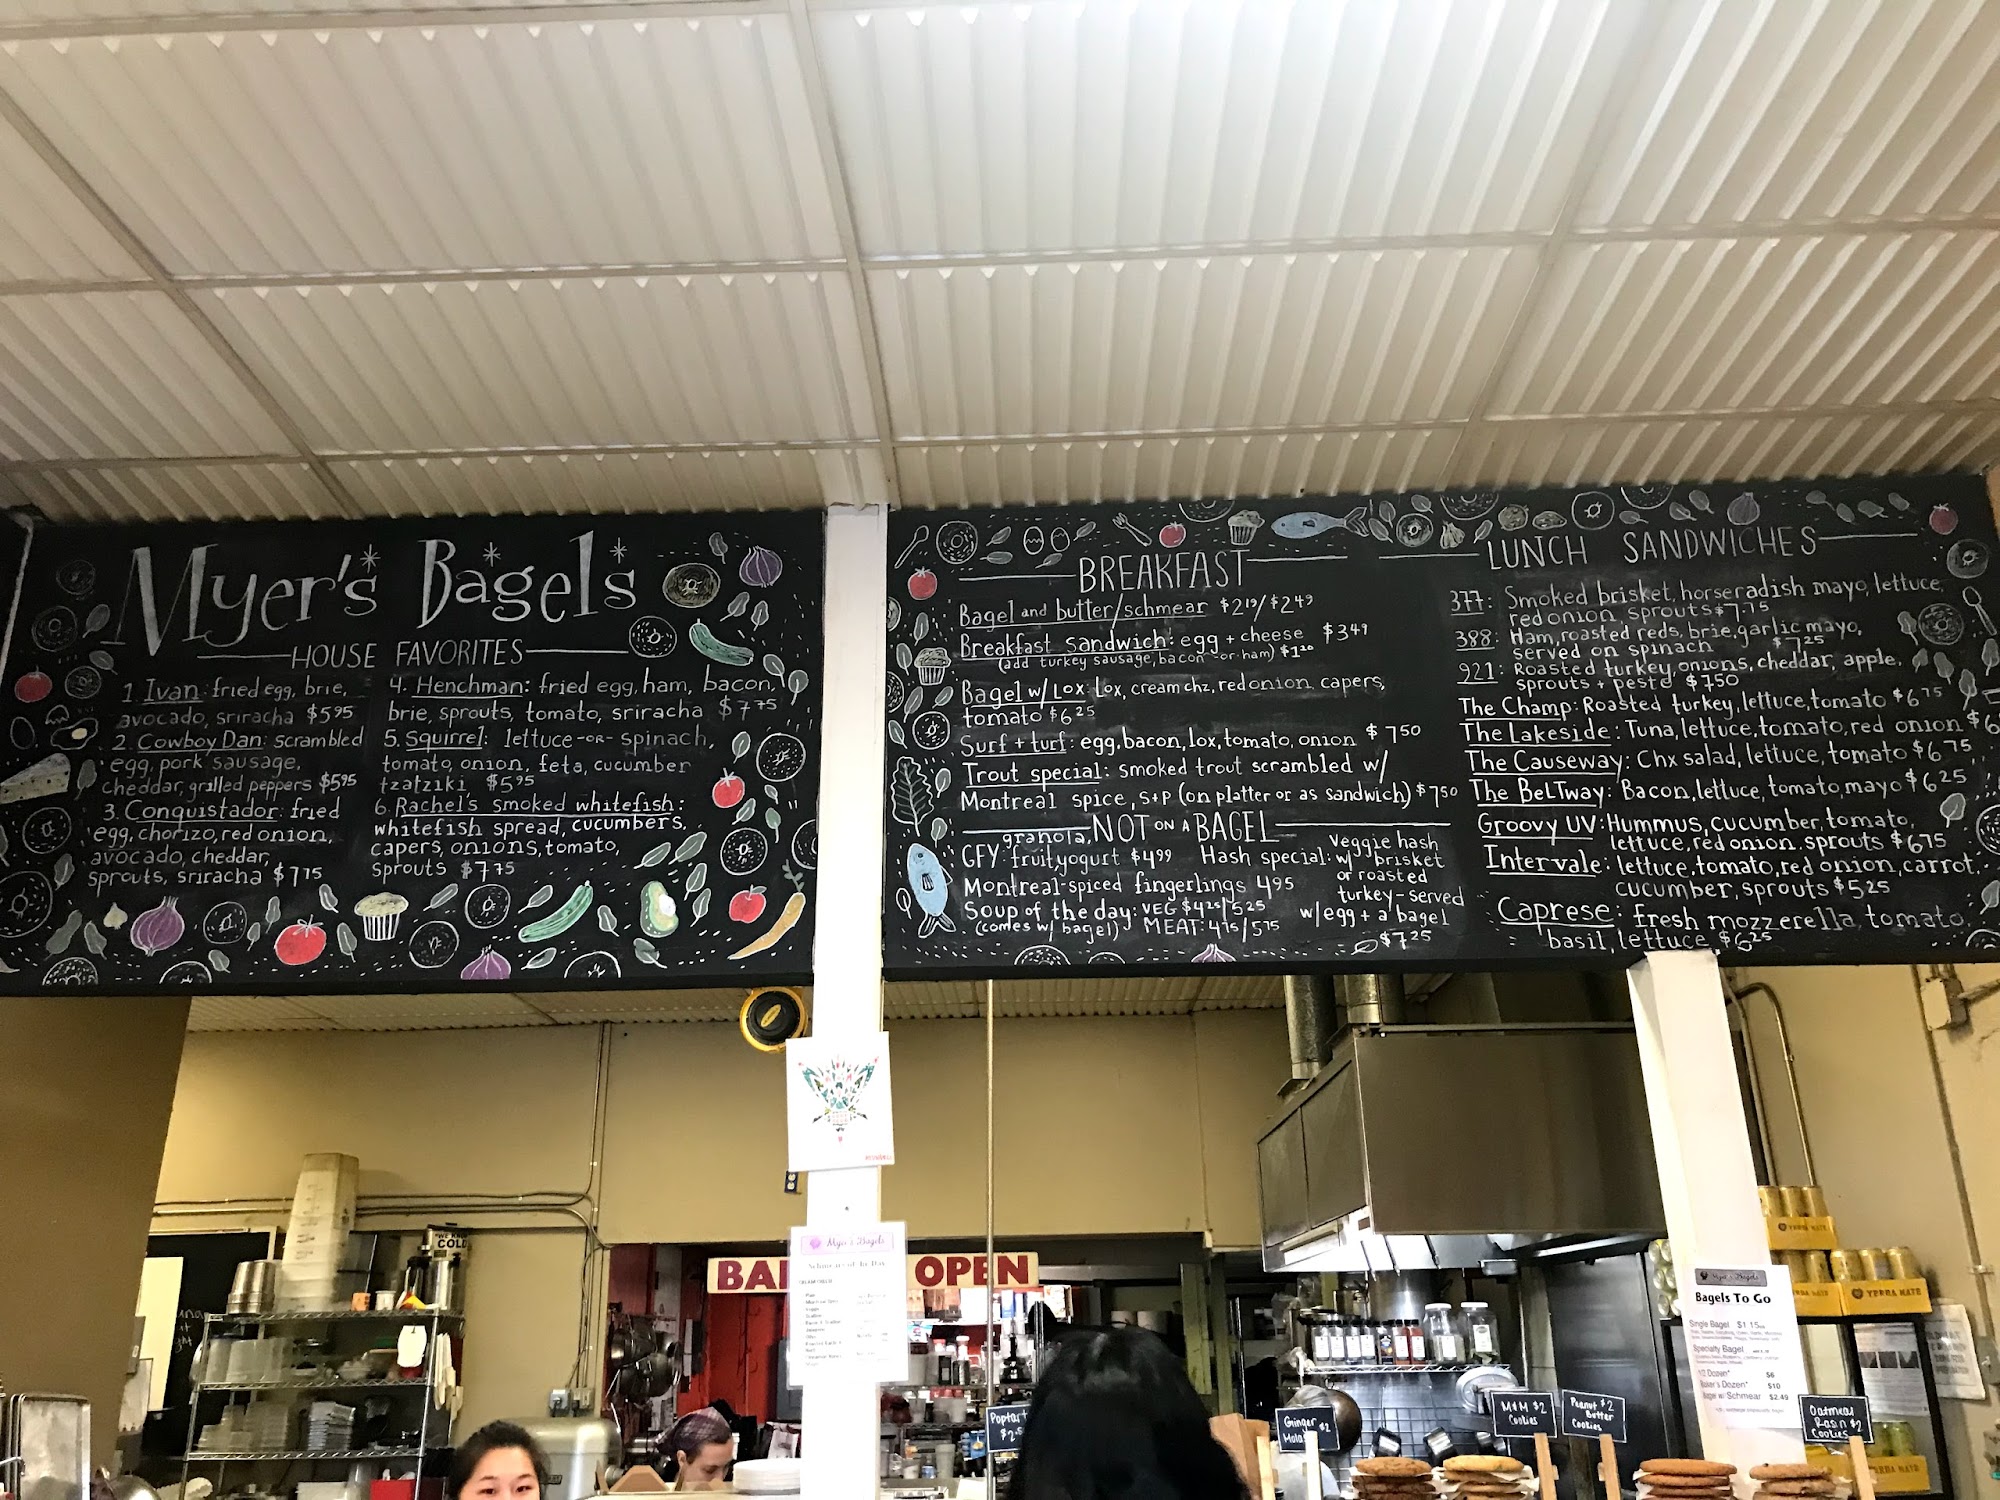 Myer's Bagels
HOUSE FAVORITES
1. Ivan: fried egg, brie,
avocado, sriracha $5.95
2. Cowboy Dan: scrambled
egg, pork sausage,
cheddar, grilled peppers $5.95
3. Conquistador: fried
egg, chorizo, red onion,
avocado, cheddar,
sprouts, sriracha $7.75
4. Henchman: fried egg, ham, bacon,
brie, sprouts, tomato, sriracha $7.75
5. Squirrel: lettuce -OR- spinach,
tomato, onion, feta, cucumber
tzatziki $5.95
6. Rachel's smoked whitefish:
whitefish spread, cucumbers,
capers, onions, tomato,
sprouts $7.75
BREAKFAST
Bagel and butter/schmear $2.19/$2.49
Breakfast sandwich: egg + cheese $3.49
(add turkey sausage, bacon -or- ham) $1.20
Bagel w/ Lox: Lox, cream chz, red onion, capers,
tomato $6.25
Surf + turf: egg, bacon, lox, tomato, onion $7.50
Trout special: smoked trout scrambled w/
Montreal spice, S+P (on platter or as sandwich) $7.50
NOT ON A BAGEL
granola,
GFY: fruit, yogurt $4.99
Montreal-spiced fingerlings 4.95
Soup of the day: VEG $4.25/5.25
(comes w/ bagel) MEAT: 4.75/5.75
Veggie hash
Hash special: w/ brisket
or roasted
turkey - served
w/ egg + a bagel
$7.25
LUNCH SANDWICHES
377: Smoked brisket, horseradish mayo, lettuce,
red onion, sprouts $7.75
388: Ham, roasted reds, brie, garlic mayo,
served on spinach $7.25
921: Roasted turkey, onions, cheddar, apple,
sprouts + pesto $7.50
The Champ: Roasted turkey, lettuce, tomato $6.75
The Lakeside: Tuna, lettuce, tomato, red onion $6
The Causeway: Chx salad, lettuce, tomato $6.75
The BeLTway: Bacon, lettuce, tomato, mayo $6.25
Groovy UV: Hummus, cucumber, tomato,
lettuce, red onion, sprouts $6.75
Intervale: lettuce, tomato, red onion, carrot,
cucumber, sprouts $5.25
Caprese: fresh mozzerella, tomato
basil, lettuce $6.25
COLD
BA
OPEN
Myer's Bagels
Schmears of the Day
YERBA MATE
YERBA MATE
Myer's Bagels
Bagels To Go
Single Bagel $1.15
Specialty Bagel
1/2 Dozen* $6
Baker's Dozen* $10
Bagel w/ Schmear $2.49
Poptart
$2.
Ginger $2
Molas
M&M $2
Cookies
Peanut $2
Butter
Cookies
Oatmeal
Raisin $2
Cookies